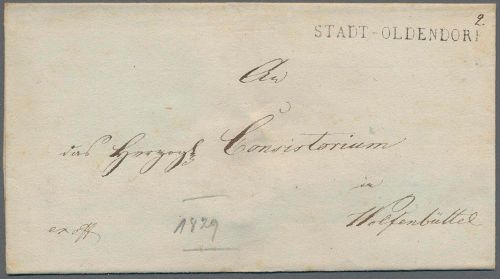 2.
STADT-OLDENDORF
An
das Herzogl. Consistorium
in
Wolfenbüttel
1829